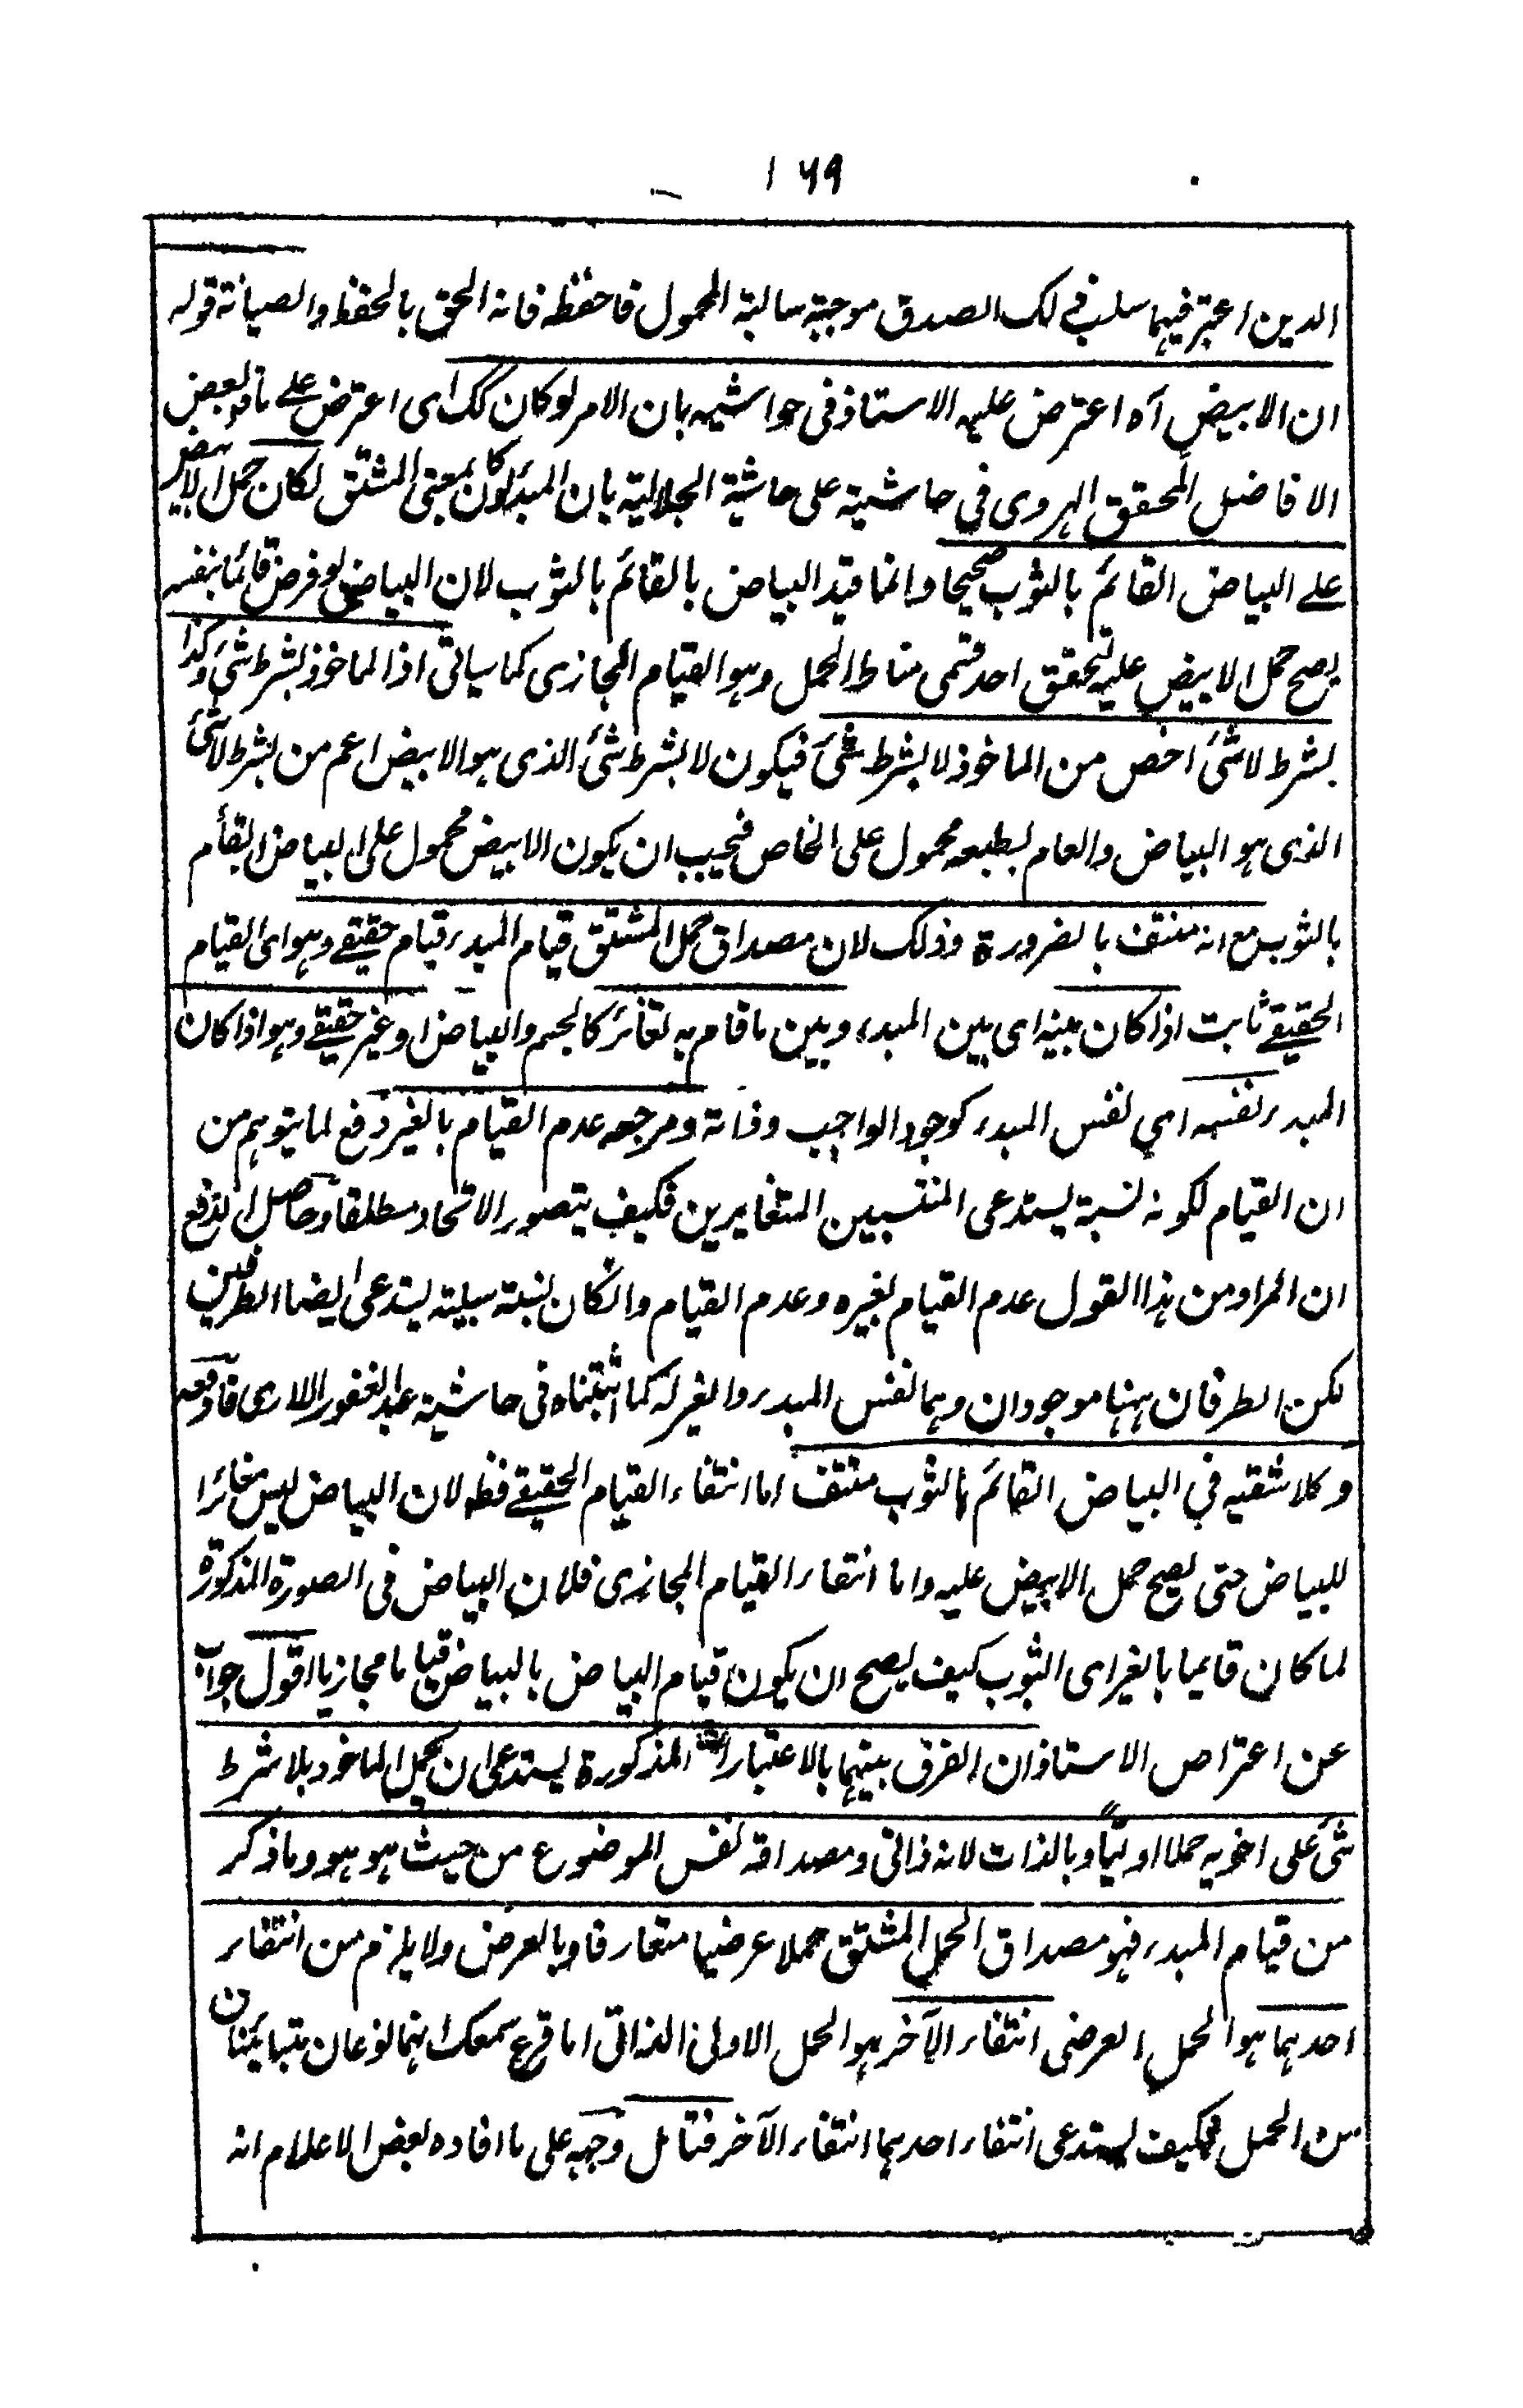 ١٦٩
الدين اعتبر فيهما سلب ذلك الصدق موجبة سالبة المحمول فاحفظه فانه الحق بالحفظ والصيانة قوله
ان الابيض آه اعترض عليه الاستاذ فى حواشيه بان الامر لو كان كك اى اعترض على ما قد بعض
الافاضل المحقق الهروى في حاشيته على حاشية الجلالية بان المبدأ لو كان بمعنى المشتق لكان حمل الابيض
على البياض القائم بالثوب صحيحا وانما قيد البياض بالقائم بالثوب لان البياض لو فرض قائما بنفسه
يصح حمل الابيض عليه لتحقق احد قسمى مناط الحمل وهو القيام المجازى كما سياتى اذ الماخوذ بشرط شئ وكذا
بشرط لا شئ اخص من الماخوذ لا بشرط شئ فيكون لا بشرط شئ الذى هو الابيض اعم من بشرط لا شئ
الذى هو البياض والعام بطبعه محمول على الخاص فيجب ان يكون الابيض محمول على البياض القائم
بالثوب مع انه منتف بالضرورة وذلك لان مصداق حمل المشتق قيام المبدء قيام حقيقے وهو اى القيام
الحقيقے ثابت اذا كان بينه اى بين المبدء وبين ما قام به تغائر كالجسم والبياض او غير حقيقے وهو اذا كان
المبدء نفسه اى نفس المبدء كوجود الواجب وذاته ومرجعه عدم القيام بالغير دفع لما يتوهم من
ان القيام لكونه نسبة يستدعى المنتسبين المتغايرين فكيف يتصور الاتحاد مطلقا وحاصل الدفع
ان المراد من هذا القول عدم القيام لغيره وعدم القيام وانكان نسبة سلبية يستدعى ايضا الطرفين
لكن الطرفان ههنا موجودان وهما نفس المبدء والغير له كما اثبتناه فى حاشية عبد الغفور اللارى فادفعه
وكلا شقيه في البياض القائم بالثوب منتف اما انتفاء القيام الحقيقے فظ لان البياض ليس مغائرا
للبياض حتى يصح حمل الابيض عليه واما انتفاء القيام المجازى فلان البياض فى الصورة المذكورة
لما كان قايما بالغير اى الثوب كيف يصح ان يكون قيام البياض بالبياض قياما مجازيا اقول جواب
عن اعتراض الاستاذ ان الفرق بينهما بالاعتبارات المذكورة يستدعى ان يحمل الماخوذ بلا شرط
شئ على اخويه حملا اوليًا وبالذات لانه ذاتى ومصداقه نفس الموضوع من حيث هو هو وما ذكر
من قيام المبدء فهو مصداق الحمل المشتق حملا عرضيا متعارفا وبالعرض ولا يلزم من انتفاء
احدهما هو الحمل العرضى انتفاء الآخر هو الحمل الاولى الذاتى اما قرع سمعك انهما نوعان متبائنان
من الحمل فكيف يستدعى انتفاء احدهما انتفاء الآخر فتامل وجهه على ما افاده بعض الاعلام انه